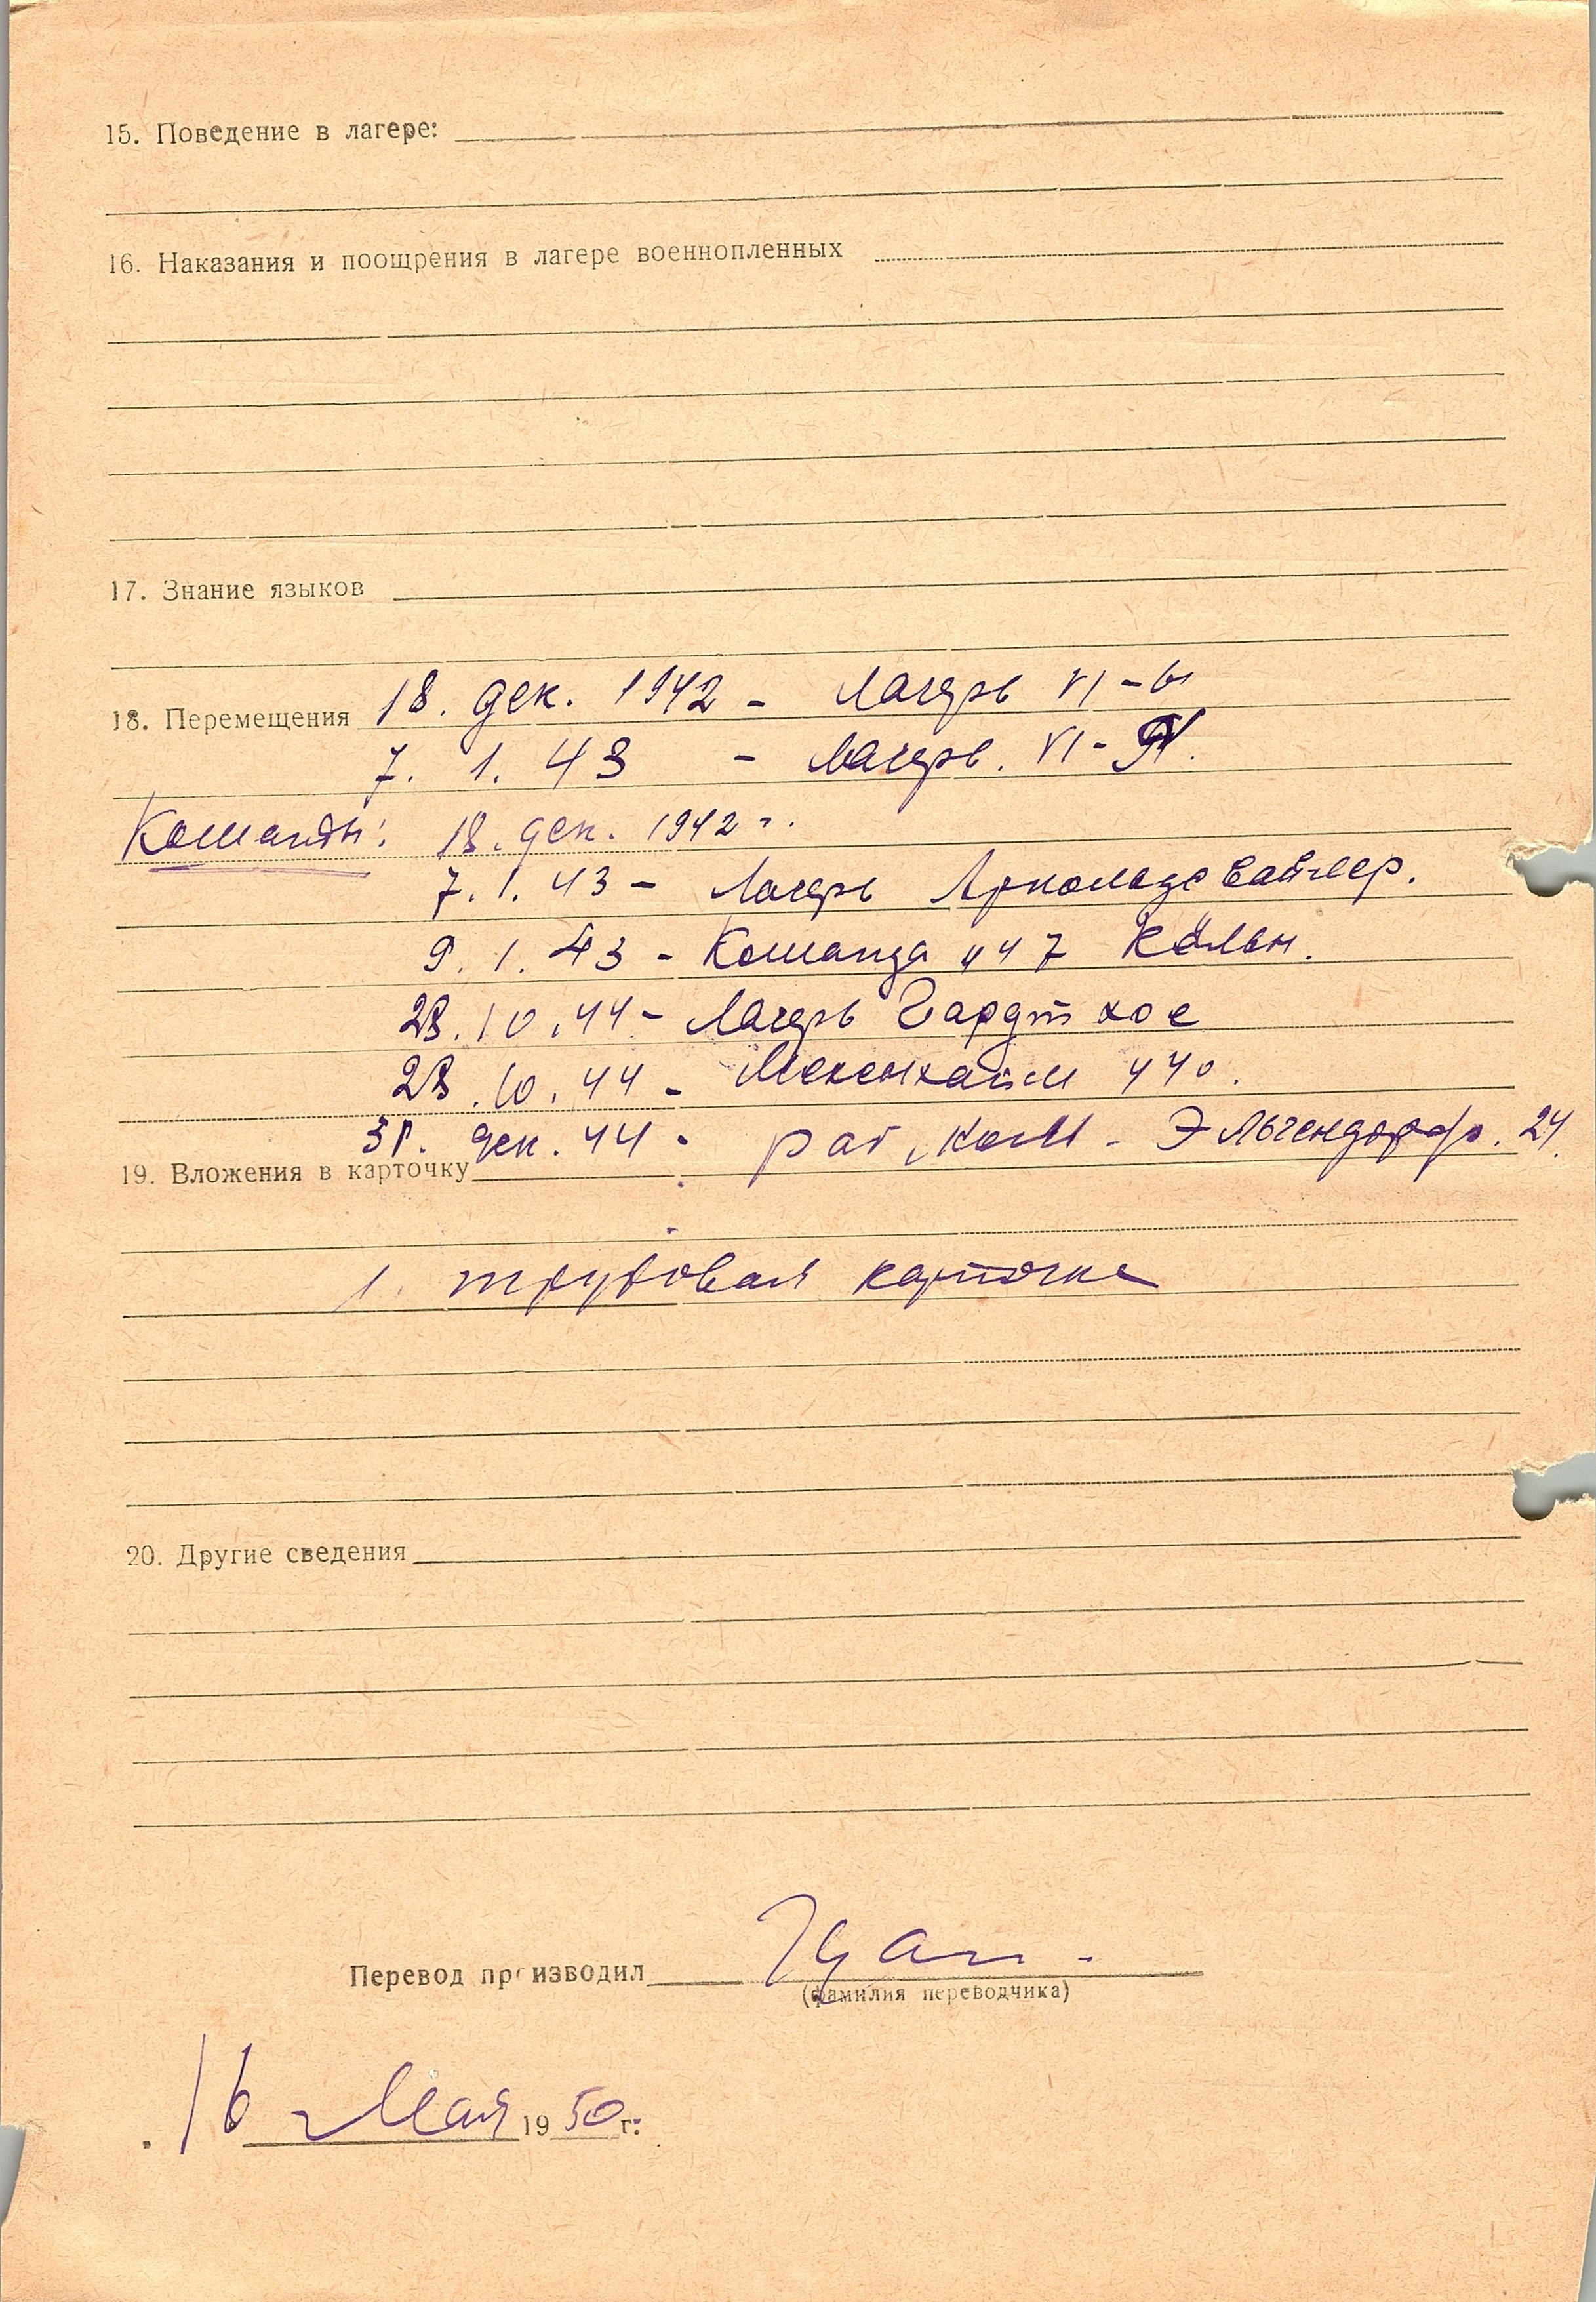 15. Поведение в лагере:
16. Наказания и поощрения в лагере военнопленных
17. Знание языков
18. Перемещения 18. дек. 1942 - лагерь VI-
7. 1. 43 - лагерь. VI-
Команды: 18. дек. 1942 г.
7. 1. 43 - лагерь Арнольдсвайлер.
9. 1. 43 - Команда 447 Кёльн.
28. 10. 44 - лагерь Гардт хое
28. 10. 44 - Мекенхайм 440.
31. дек. 44 - раб. ком - Эльгендорф. 24.
19. Вложения в карточку
1. трудовая карточка
20. Другие сведения
Перевод производил
(фамилия переводчика)
16 Мая 1950 г.